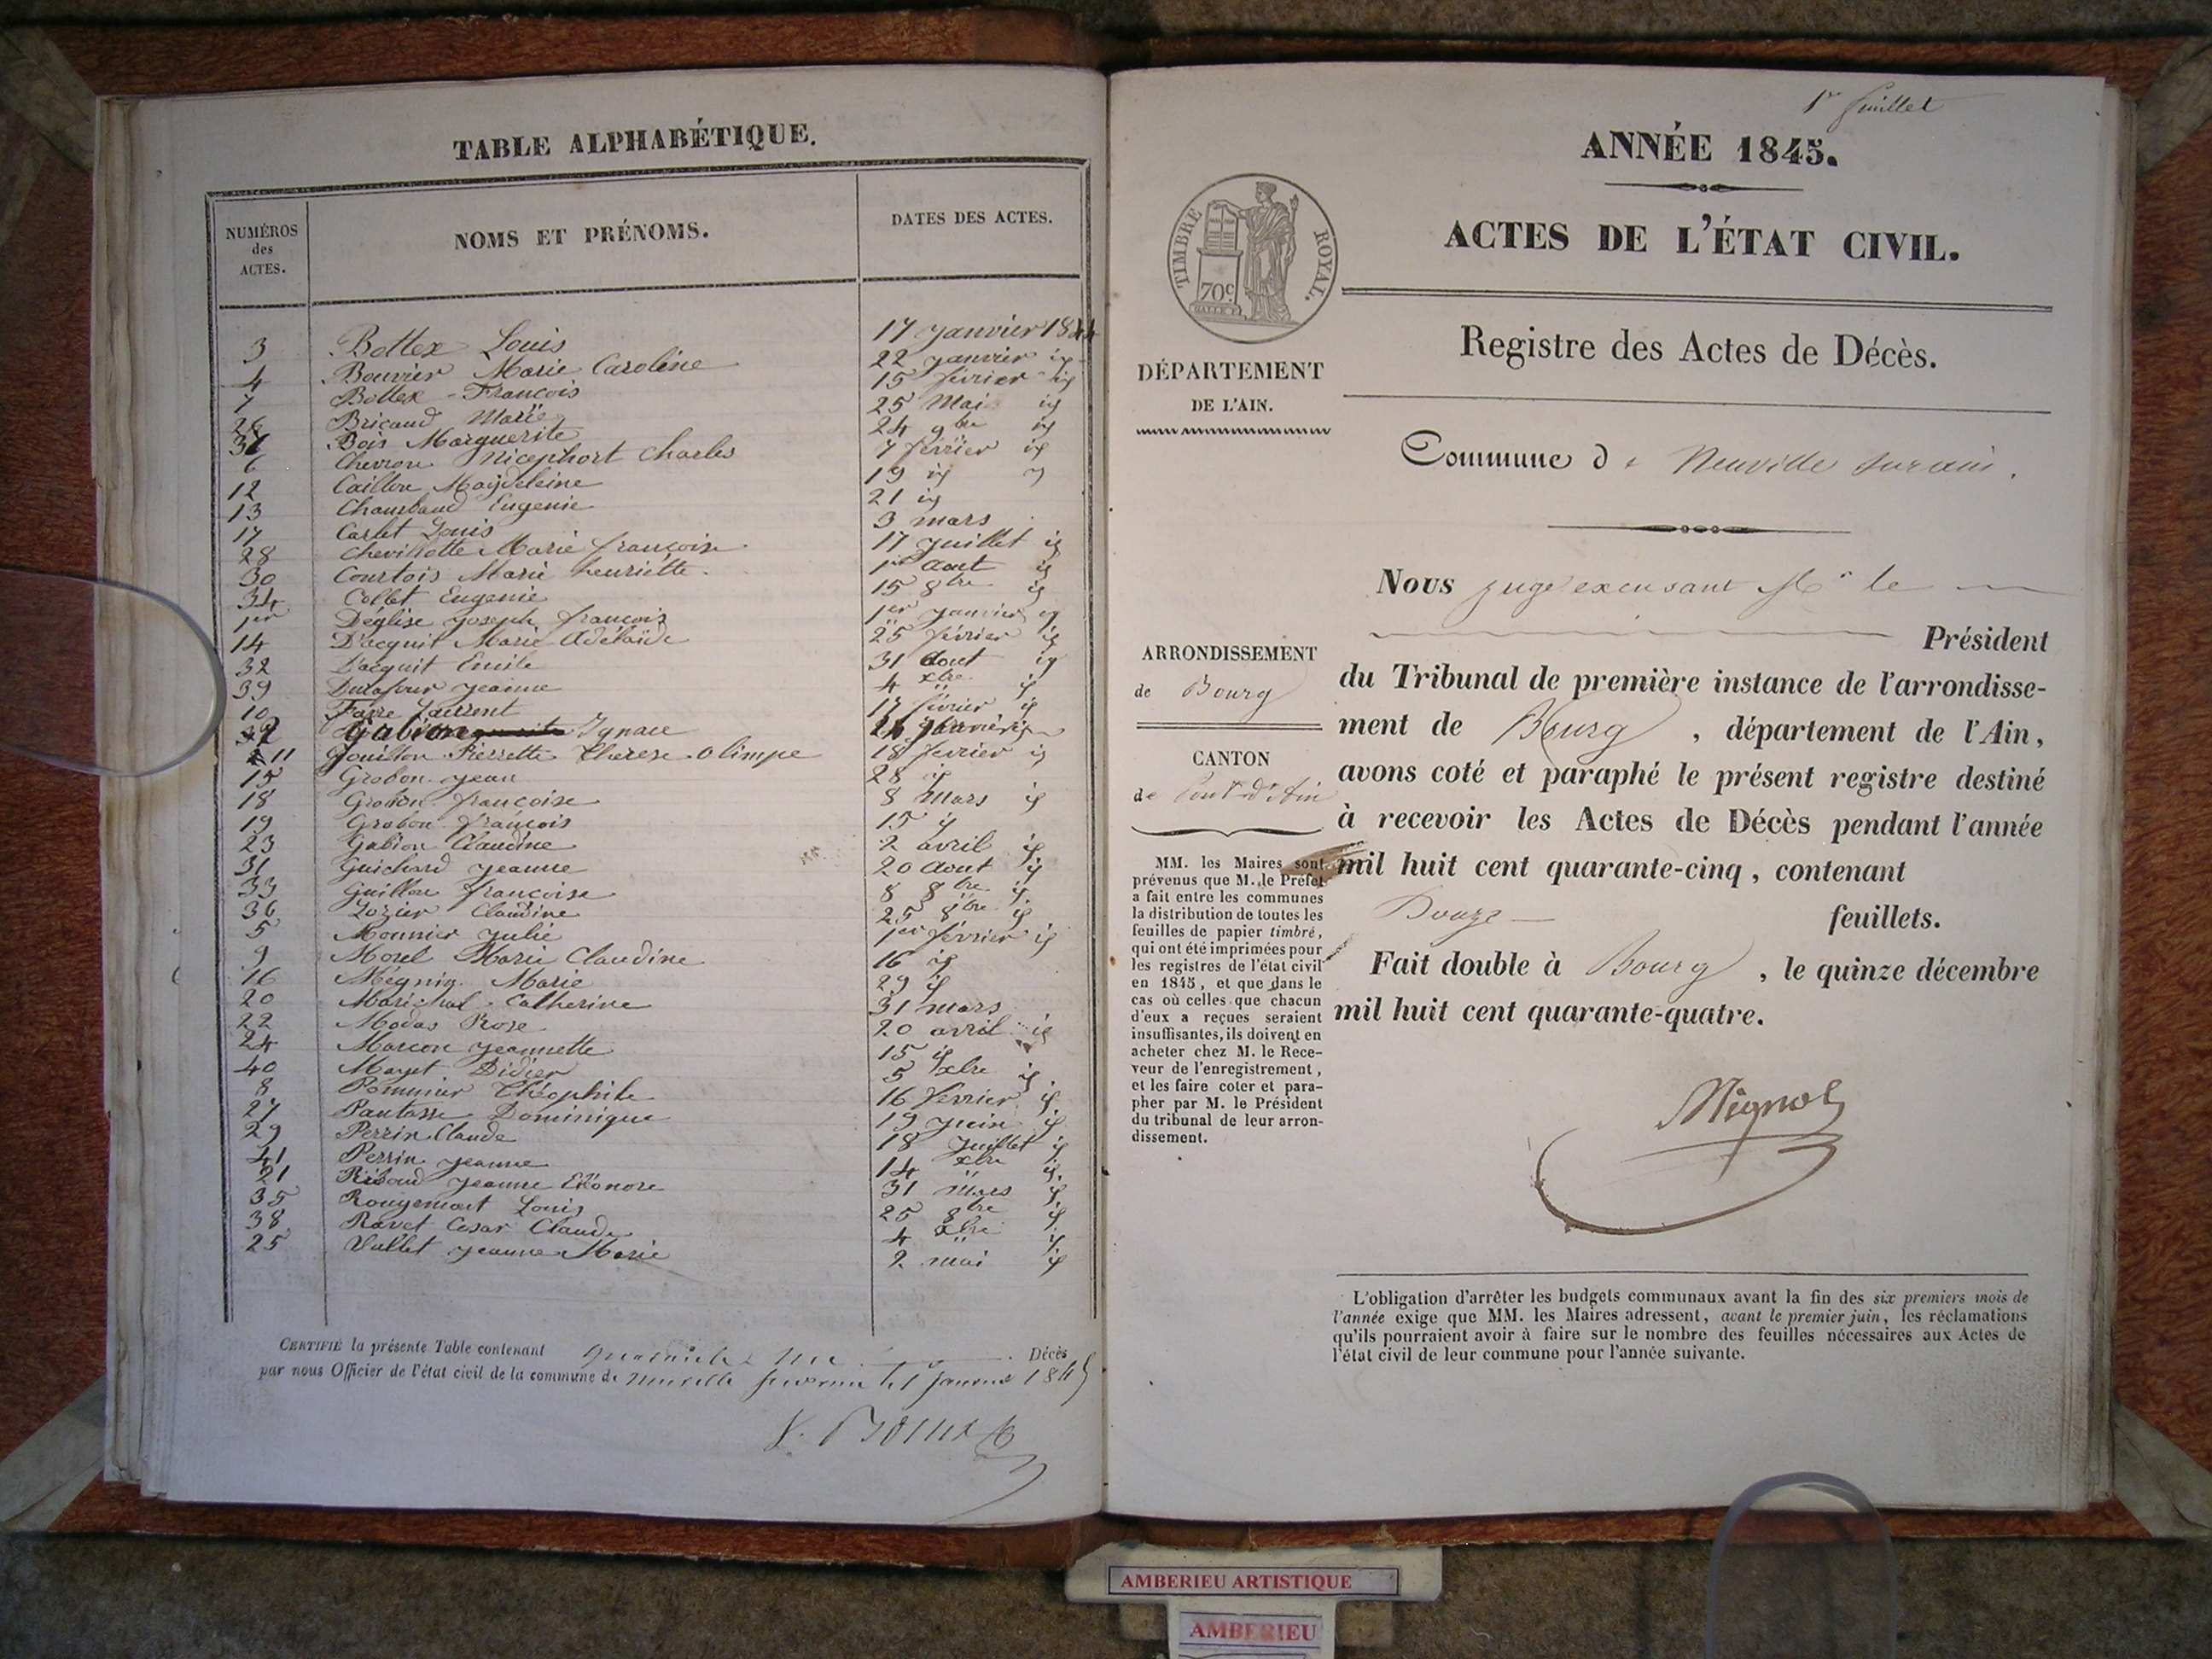 TABLE ALPHABÉTIQUE.
NUMÉROS des ACTES. NOMS ET PRÉNOMS. DATES DES ACTES.
3 Bottex Louis 17 janvier 1844
4 Bouvier Marie Caroline 22 janvier id
7 Bottex François 15 février id
26 Bricaud Marie 25 Mai id
37 Bois Marguerite 24 9bre id
6 Chevron Nicephort Charles 7 février id
12 Caillon Magdeleine 19 id
13 Chambaud Eugenie 21 id
17 Carlet Louis 3 mars
28 Chevillotte Marie françoise 17 juillet id
30 Courtois Marie henriette 1er aout id
34 Collet Eugenie 15 8bre id
1er Déglise joseph françois 1er janvier id
14 D'acquit Marie Adélaïde 25 février id
32 D'acquit Emile 31 aout id
39 Durafour jeanne 4 xbre id
10 Favre Laurent 17 février id
Gabion Ignace
11 Gouillon Pierrette Therese Olimpe 18 fevrier id
15 Grobon jean 28 id
18 Grobon françoise 8 mars id
19 Grobon françois 15 id
23 Gabion Claudine 2 avril id
31 Guichard jeanne 20 aout id
33 Guillon françoise 8 8bre id
36 Lozier Claudine 25 8bre id
5 Mounier julie 1er février id
9 Morel Marie Claudine 16 id
16 Mégnin Marie 29 id
20 Marichal Catherine 31 mars
22 Modas Rose 20 avril id
24 Marcon jeannette 15 id
40 Mayet Didier 5 xbre id
8 Pommier Théophile 16 fevrier id
27 Pantasse Dominique 19 juin id
29 Perrin Claude 18 juillet id
41 Perrin jeanne 14 xbre id
21 Riboud jeanne Eléonore 31 mars id
35 Rougemont Louis 25 8bre id
38 Ravet Cesar Claude 4 xbre id
25 Vallet jeanne Marie 2 mai id
CERTIFIÉ la présente Table contenant quarante un Décès
par nous Officier de l'état civil de la commune de Neuville sur ain le 1 janvier 1845
1er feuillet
ANNÉE 1845.
ACTES DE L'ÉTAT CIVIL.
TIMBRE ROYAL.
70c
DÉPARTEMENT
DE L'AIN.
Registre des Actes de Décès.
Commune de Neuville sur ain.
Nous juge excusant Mr le
Président
du Tribunal de première instance de l'arrondisse-
ment de Bourg, département de l'Ain,
avons coté et paraphé le présent registre destiné
à recevoir les Actes de Décès pendant l'année
mil huit cent quarante-cinq, contenant
Douze feuillets.
Fait double à Bourg, le quinze décembre
mil huit cent quarante-quatre.
Mignot
ARRONDISSEMENT
de Bourg
CANTON
de Pont-d'Ain
MM. les Maires sont
prévenus que M. le Préfet
a fait entre les communes
la distribution de toutes les
feuilles de papier timbré,
qui ont été imprimées pour
les registres de l'état civil
en 1845, et que dans le
cas où celles que chacun
d'eux a reçues seraient
insuffisantes, ils doivent en
acheter chez M. le Rece-
veur de l'enregistrement,
et les faire coter et para-
pher par M. le Président
du tribunal de leur arron-
dissement.
L'obligation d'arrêter les budgets communaux avant la fin des six premiers mois de
l'année exige que MM. les Maires adressent, avant le premier juin, les réclamations
qu'ils pourraient avoir à faire sur le nombre des feuilles nécessaires aux Actes de
l'état civil de leur commune pour l'année suivante.
AMBERIEU ARTISTIQUE
AMBERIEU